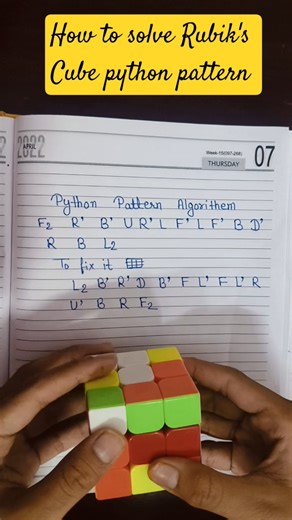 How to solve Rubik's
Cube python pattern
2
APRIL
2022
Week-15(097-268)
THURSDAY
07
Python Pattern Algorithem
F2 R' B' U R' L F' L F' B D'
R B L2
To fix it
L2 B' R' D B' F L' F L' R
U' B R F2